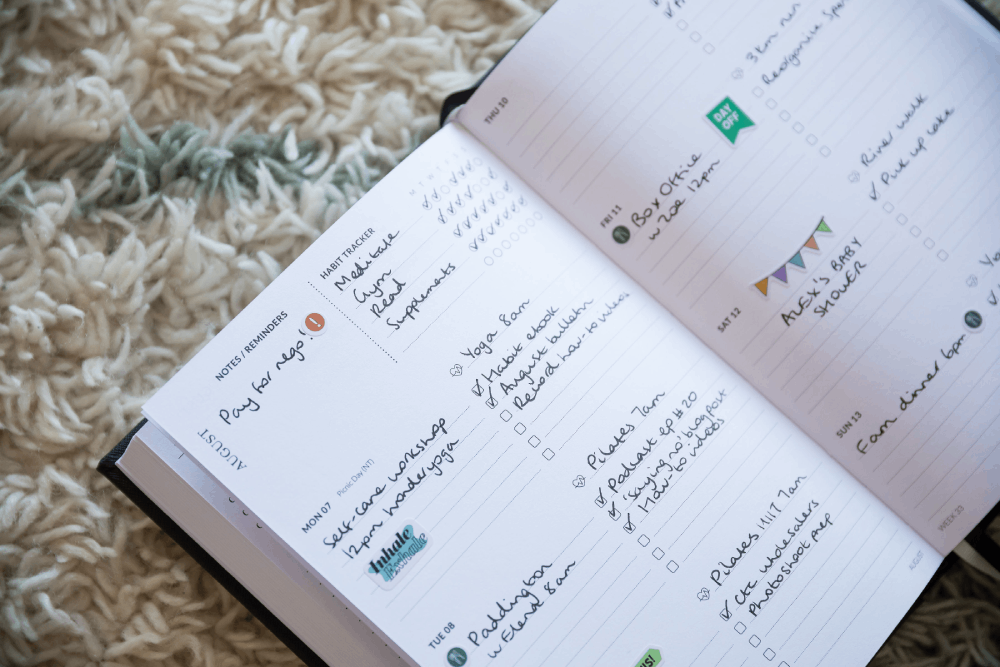 AUGUST
NOTES / REMINDERS
Pay for rego!
HABIT TRACKER
M T W T F S S
Meditate
Gym
Read
Supplements
MON 07
Picnic Day (NT)
Self-care workshop
12pm handeryoga
inhale
Yoga 8am
Habit ebook
August bulletin
Record how-to videos
TUE 08
Paddington
w Elena 8am
Pilates 7am
Podcast ep #20
'Saying no' blog post
How-to videos
Pilates 7am
Ctc wholesalers
Photoshoot prep
AUGUST
THU 10
DAY
OFF
3km run
Reorganise
FRI 11
Box Office
w Zoe 12pm
River walk
Pick up cake
SAT 12
ALEX'S BABY
SHOWER
SUN 13
Fam dinner 6pm
WEEK 23